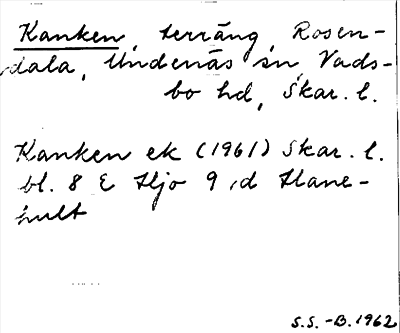 Kanken, terräng, Rosen-
dala, Undenäs sn, Vads-
bo hd, Skar. l.
Kanken ek (1961) Skar. l.
bl. 8 E Hjo 9 d Hane-
hult
S.S. -B. 1962